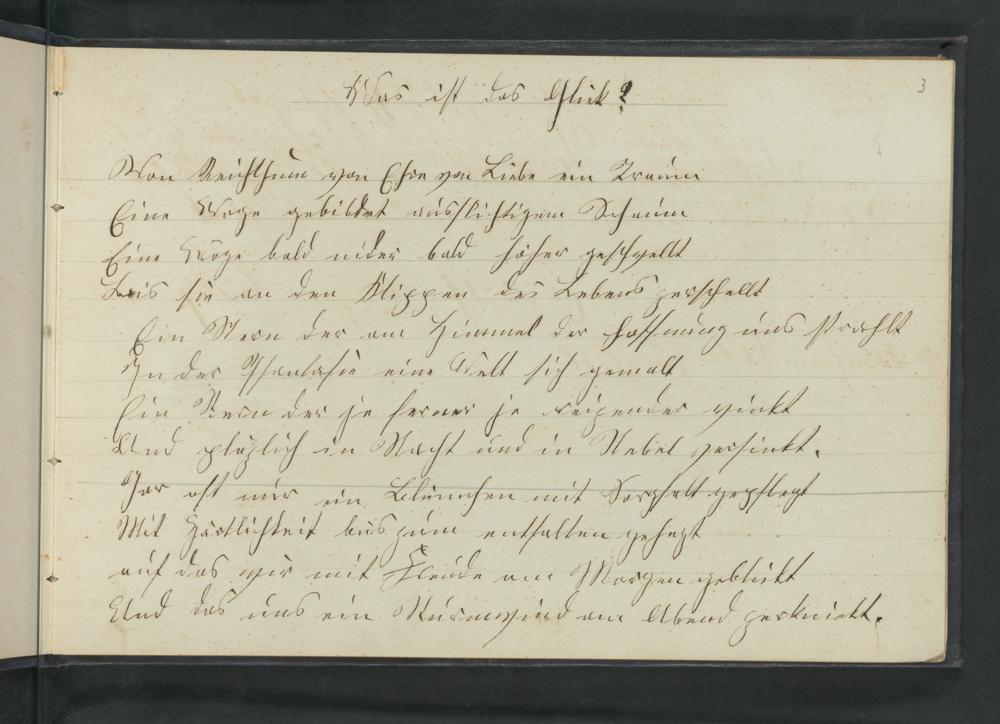 Was ist das Glük?
3
Von Reichthum von Ehre von Liebe ein Traum
Eine Woge gebildet aus flichtigem Schaum
Eine Woge bald nider bald höher geschwellt
bis sie an den Klippen des Lebens zerschellt
Ein Stern der am Himmel der Hoffnung uns strahlt
In der Phantasie eine Welt sich gemalt
Ein Stern der je ferner je reizender winkt
Und plözlich in Nacht und in Nebel versinkt.
Gar oft nur ein Blümchen mit Sorgfalt gepflegt
Mit Zärtlichkeit bis zum entfalten gehegt
auf das wir mit Freude am Morgen geblikt
Und das uns ein Sturmwind am Abend zerknickt.